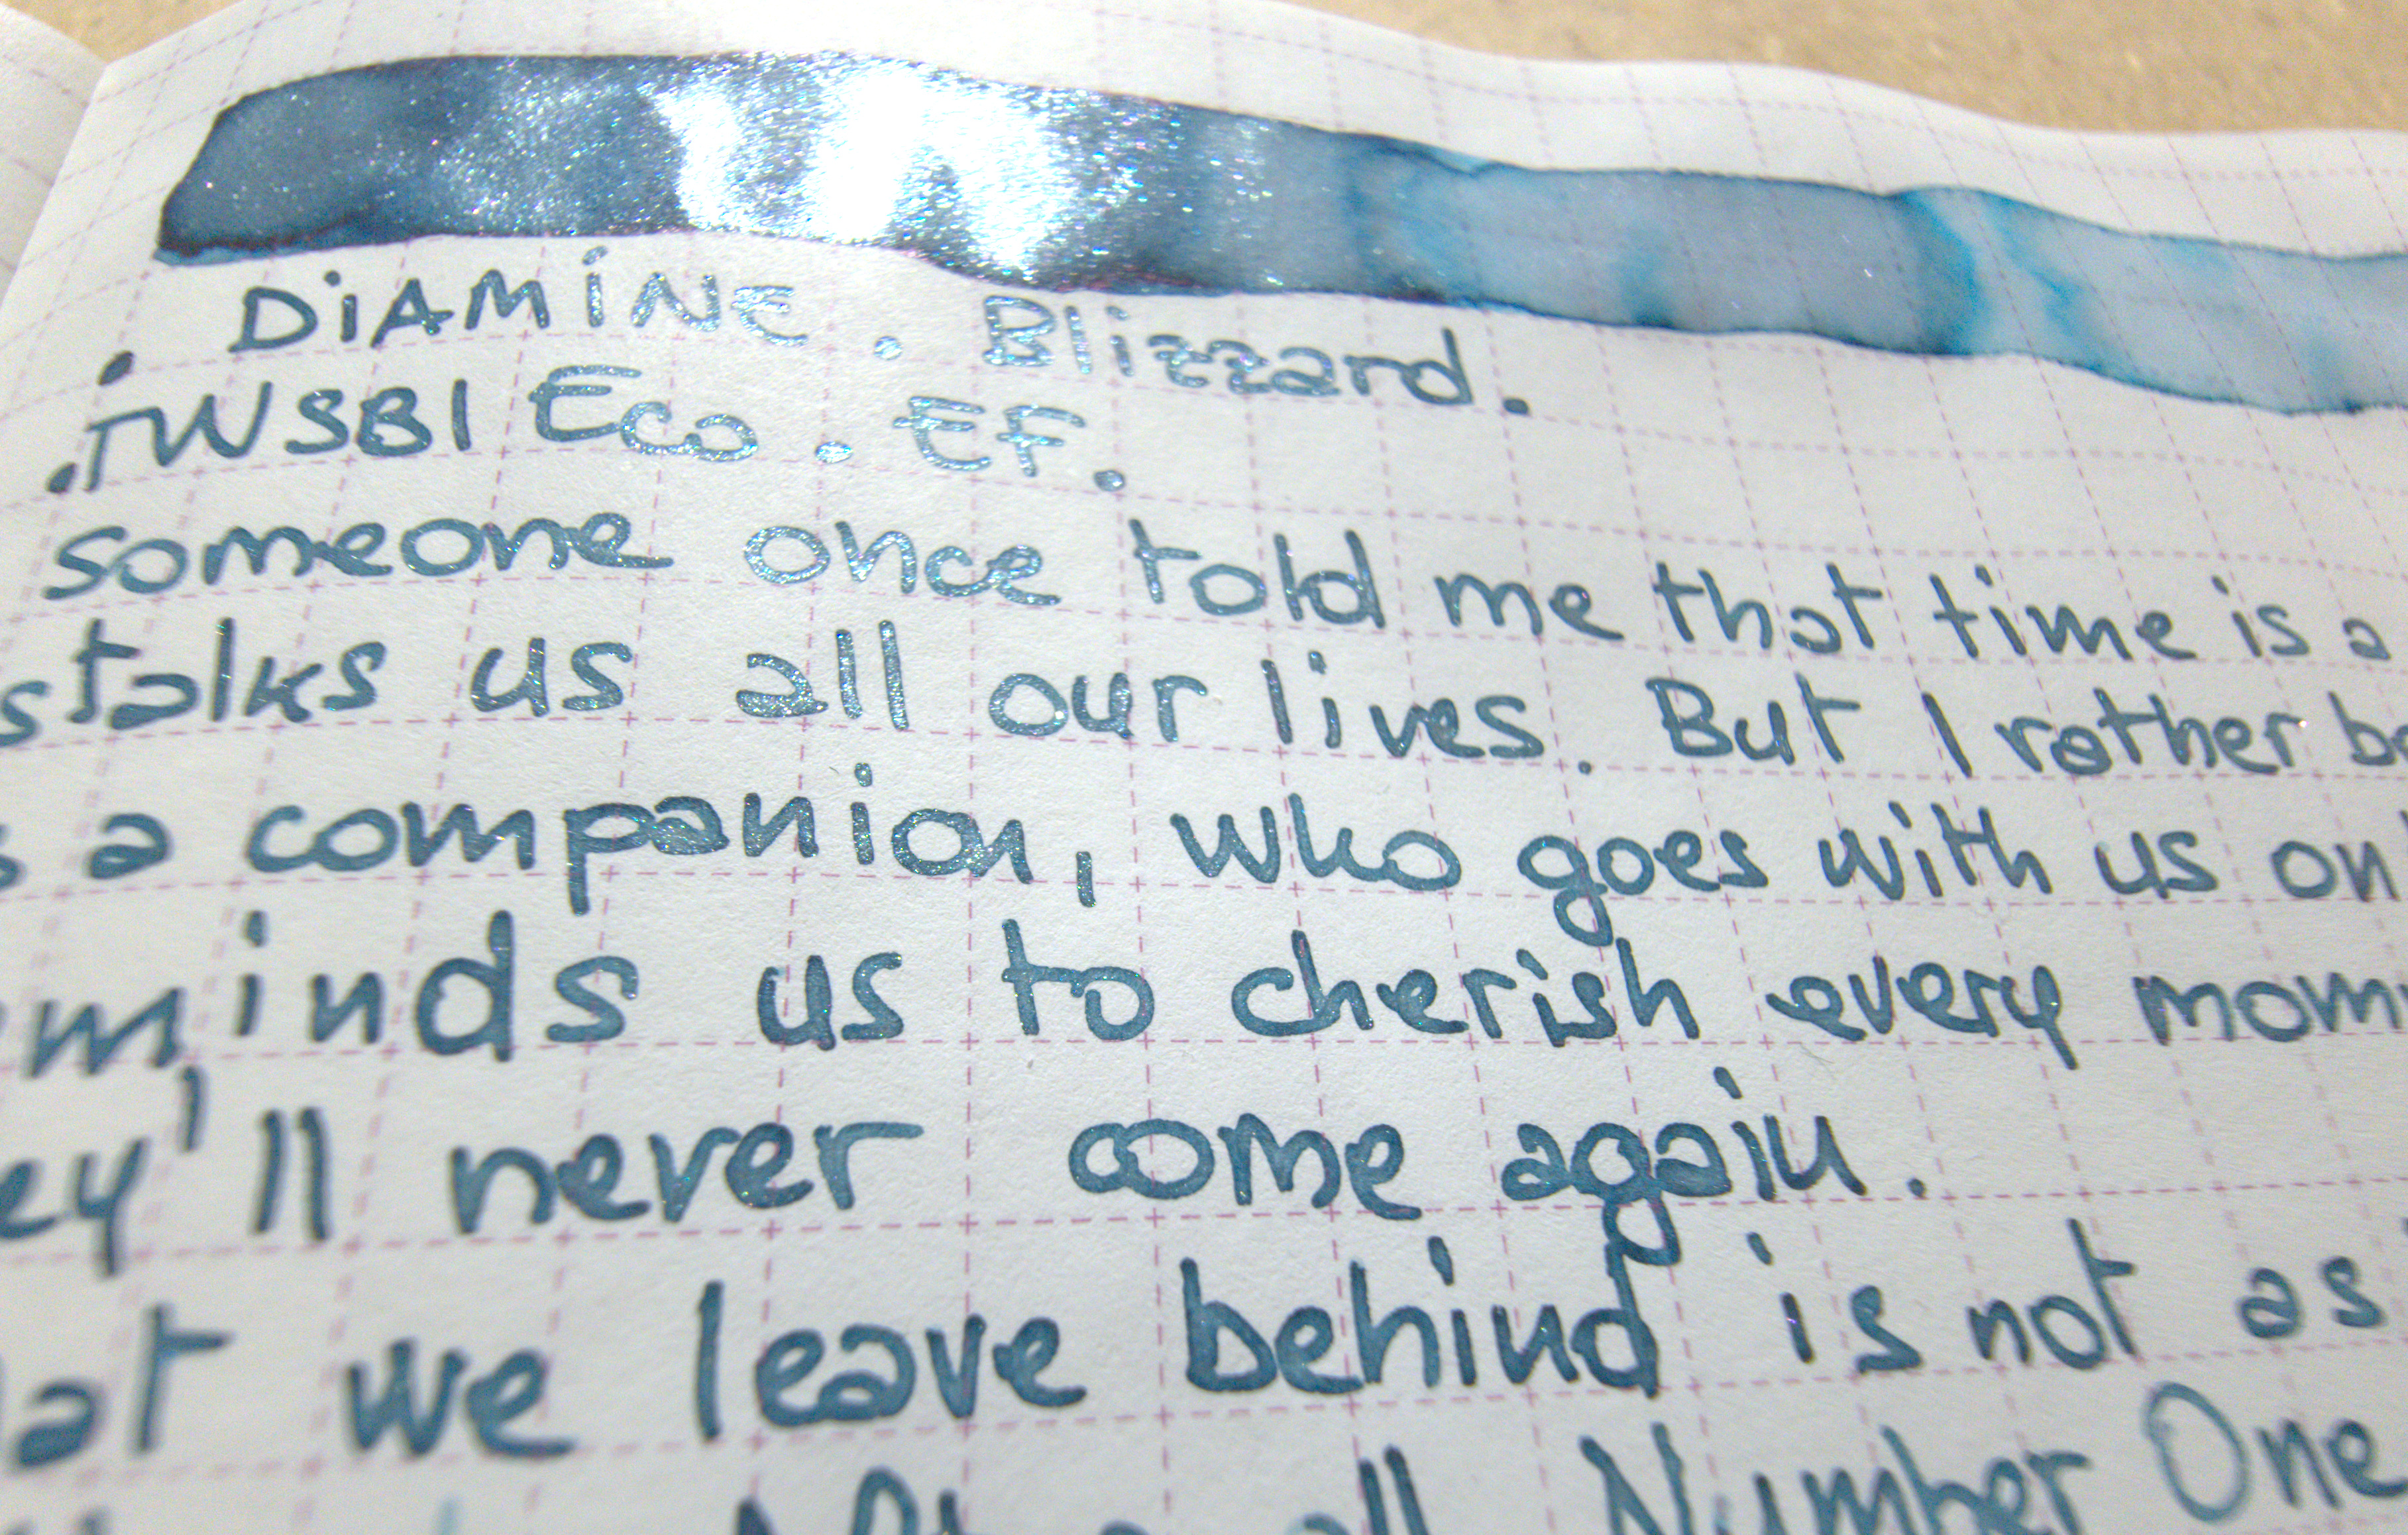 . DiAMiNE . Blizzard.
.TWSBI Eco . EF.
someone once told me that time is a
stalks us all our lives. But I rather be
s a companion, who goes with us on
minds us to cherish every mom
ey'll never come again.
at we leave behind is not as
After all Number One